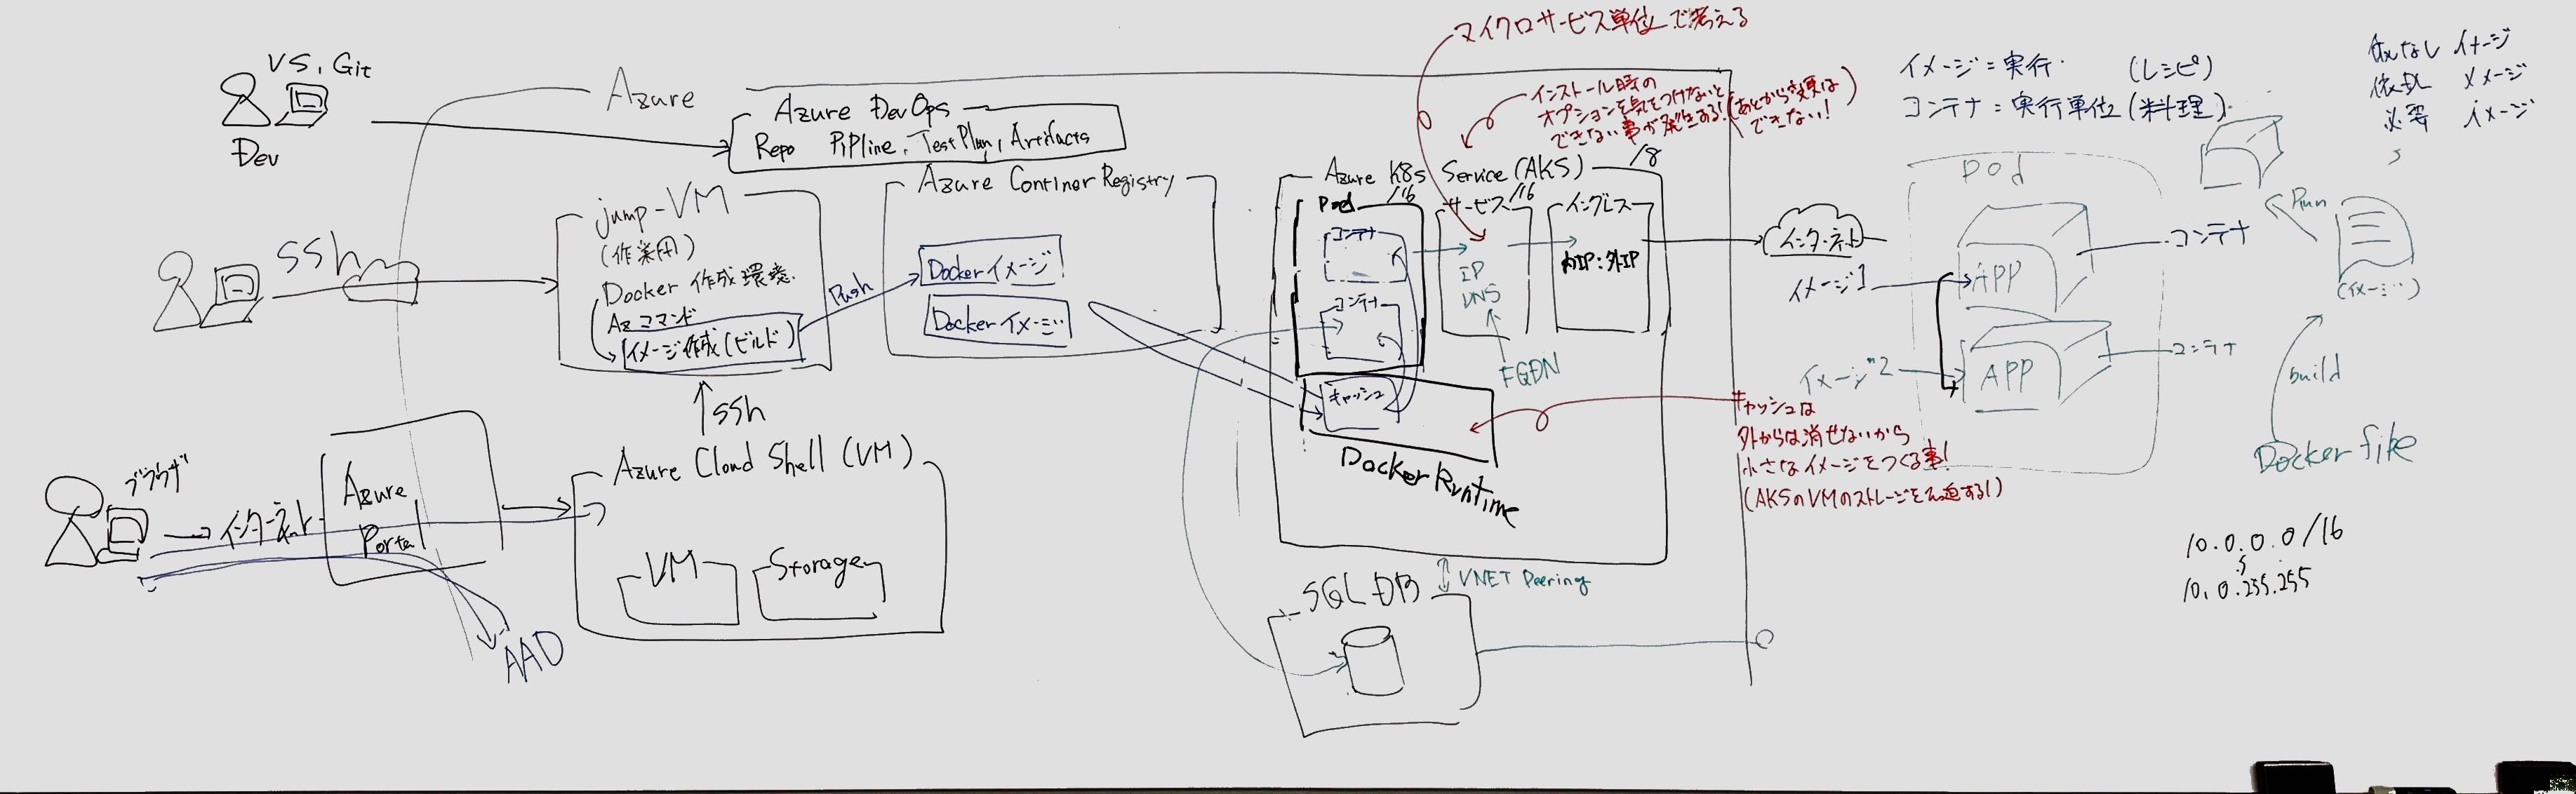 VS, Git
Dev
Azure
Azure DevOps
Repo PiPline, TestPlan, Artifacts
ssh
jump-VM
(作業用)
Docker 作成環境.
Azコマンド
イメージ作成(ビルド)
Push
Azure Continer Registry
Dockerイメージ
Dockerイメージ
↑ssh
ブラウザ
→インターネット
Azure
Portal
AAD
Azure Cloud Shell (VM)
VM
Storage
マイクロサービス単位で考える
インストール時の
オプションを気をつけないと
できない事が発生する!(あとから変更は
できない!)
Azure K8s Service (AKS) /8
Pod /16
コンテナ
コンテナ
キャッシュ
Docker Runtime
サービス /16
IP
DNS
FQDN
イングレス
内IP:外IP
インターネット
キャッシュは
外からは消せないから
小さなイメージをつくる事!
(AKSのVMのストレージを圧迫する!)
SQL DB
VNET Peering
イメージ=実行. (レシピ)
コンテナ=実行単位(料理).
なし イメージ
イメージ
必要 イメージ
Pod
APP
APP
コンテナ
コンテナ
イメージ1
イメージ2
Run
(イメージ)
build
Dockerfile
10.0.0.0/16
10.0.255.255